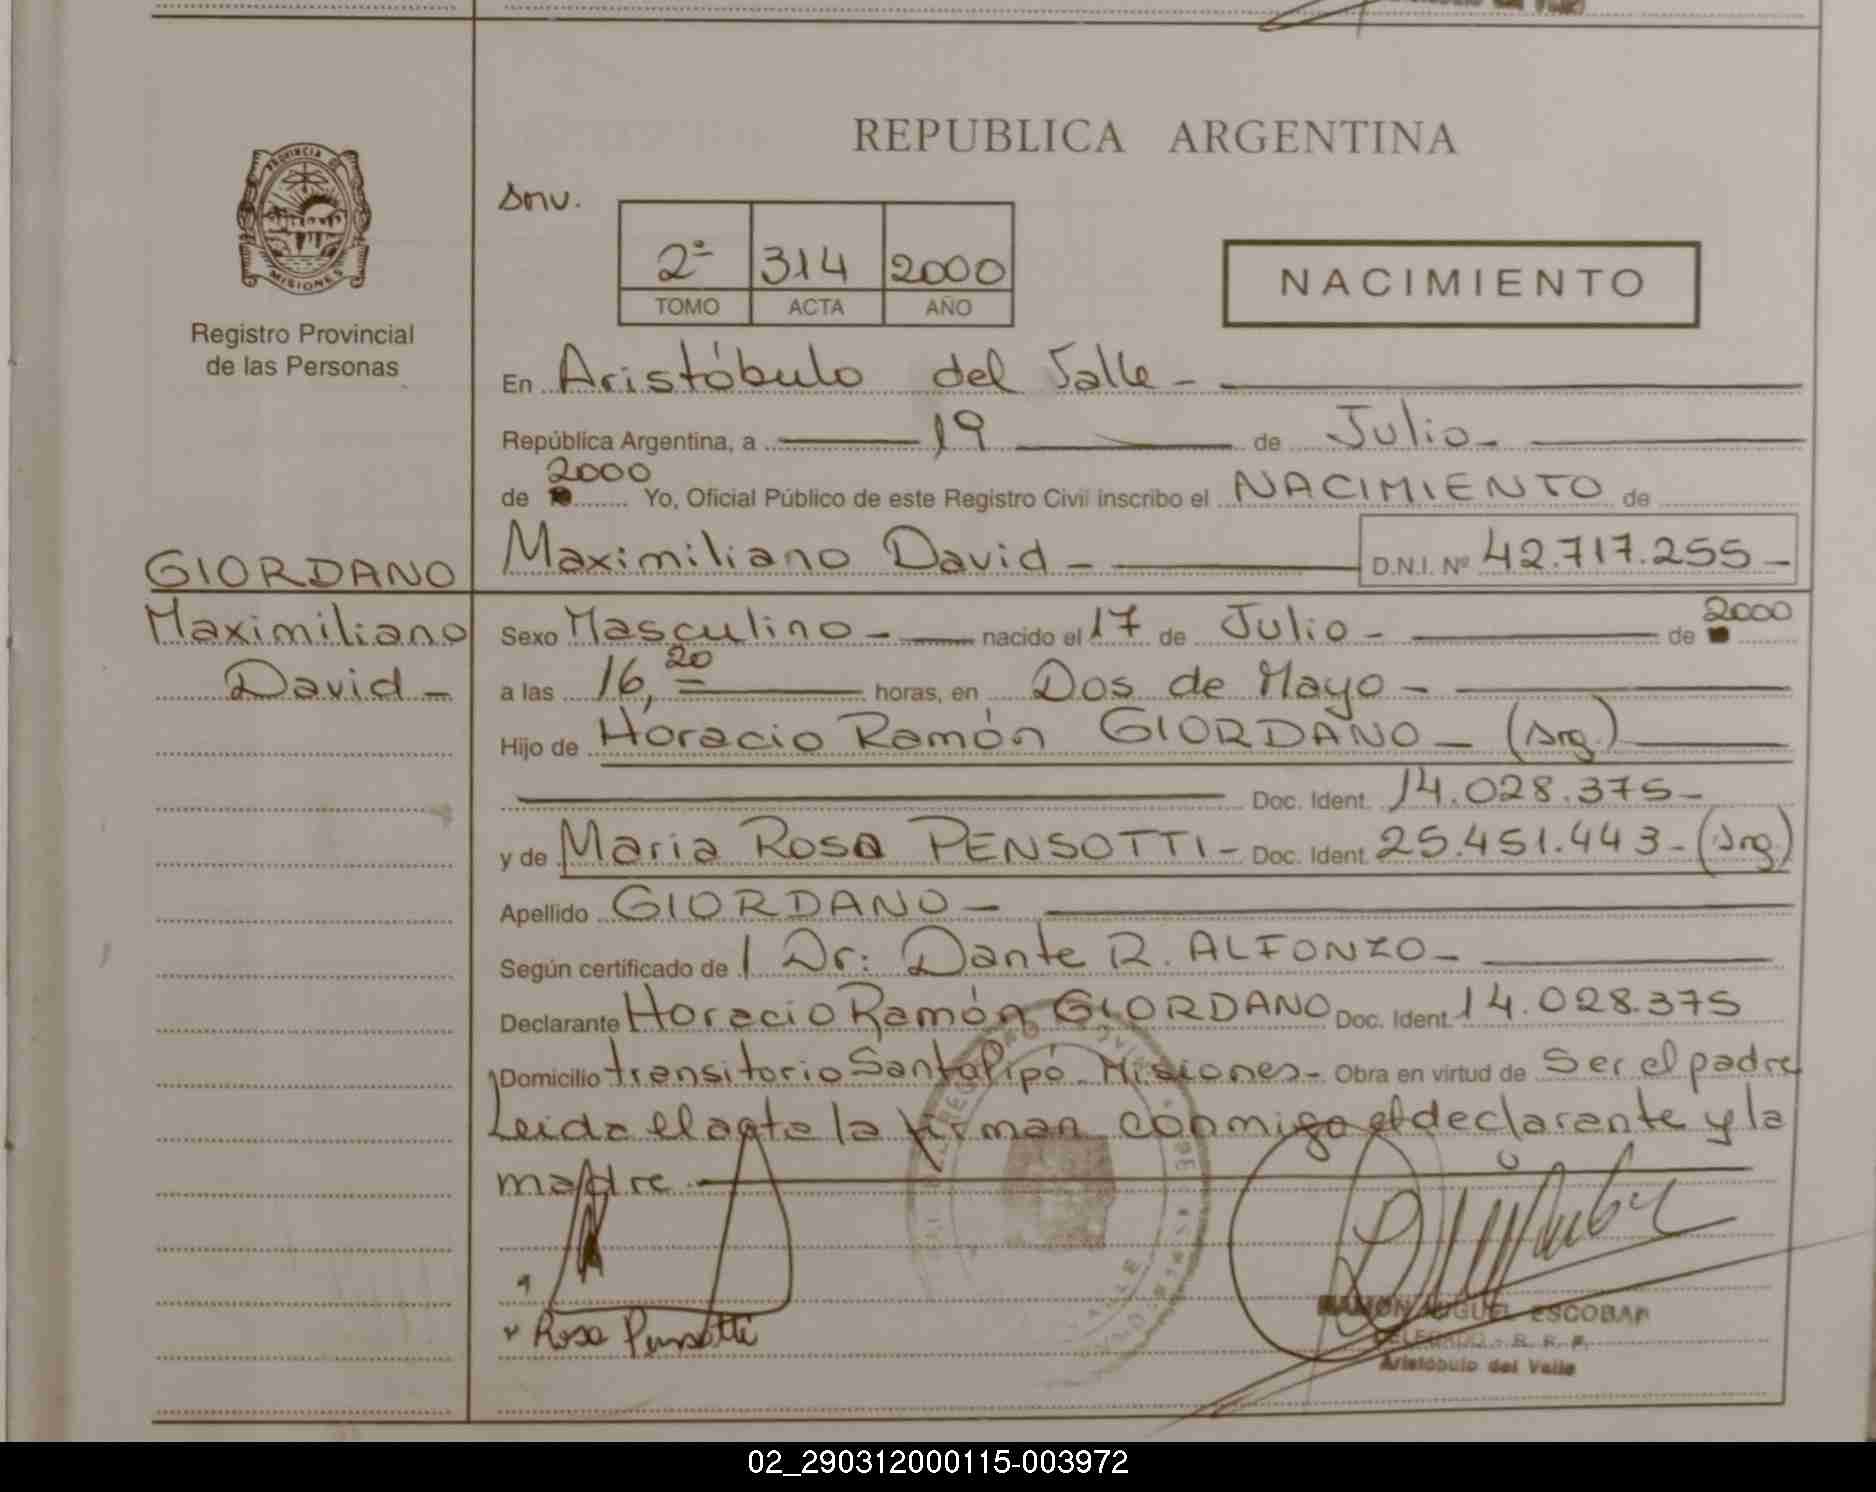 REPUBLICA ARGENTINA
PROVINCIA DE
MISIONES
Registro Provincial
de las Personas
2ª 314 2000
TOMO ACTA AÑO
NACIMIENTO
En Aristóbulo del Valle -
República Argentina, a 19 de Julio -
2000
de Yo, Oficial Público de este Registro Civil inscribo el NACIMIENTO de
GIORDANO
Maximiliano
David -
Maximiliano David - D.N.I. Nº 42.717.255 -
Sexo Masculino - nacido el 17 de Julio - de 2000
a las 16,20 horas, en Dos de Mayo -
Hijo de Horacio Ramón GIORDANO - (Arg.)
Doc. Ident. 14.028.375 -
y de Maria Rosa PENSOTTI - Doc. Ident. 25.451.443 - (Arg.)
Apellido GIORDANO -
Según certificado de Dr: Dante R. ALFONZO -
Declarante Horacio Ramón GIORDANO Doc. Ident. 14.028.375
Domicilio transitorio Santo Pipó - Misiones - Obra en virtud de Ser el padre
Leida el acta la firman conmigo el declarante y la
madre
Rosa Pensotti
RAMON MIGUEL ESCOBAR
DELEGADO - R. R. P.
Aristóbulo del Valle
02_290312000115-003972